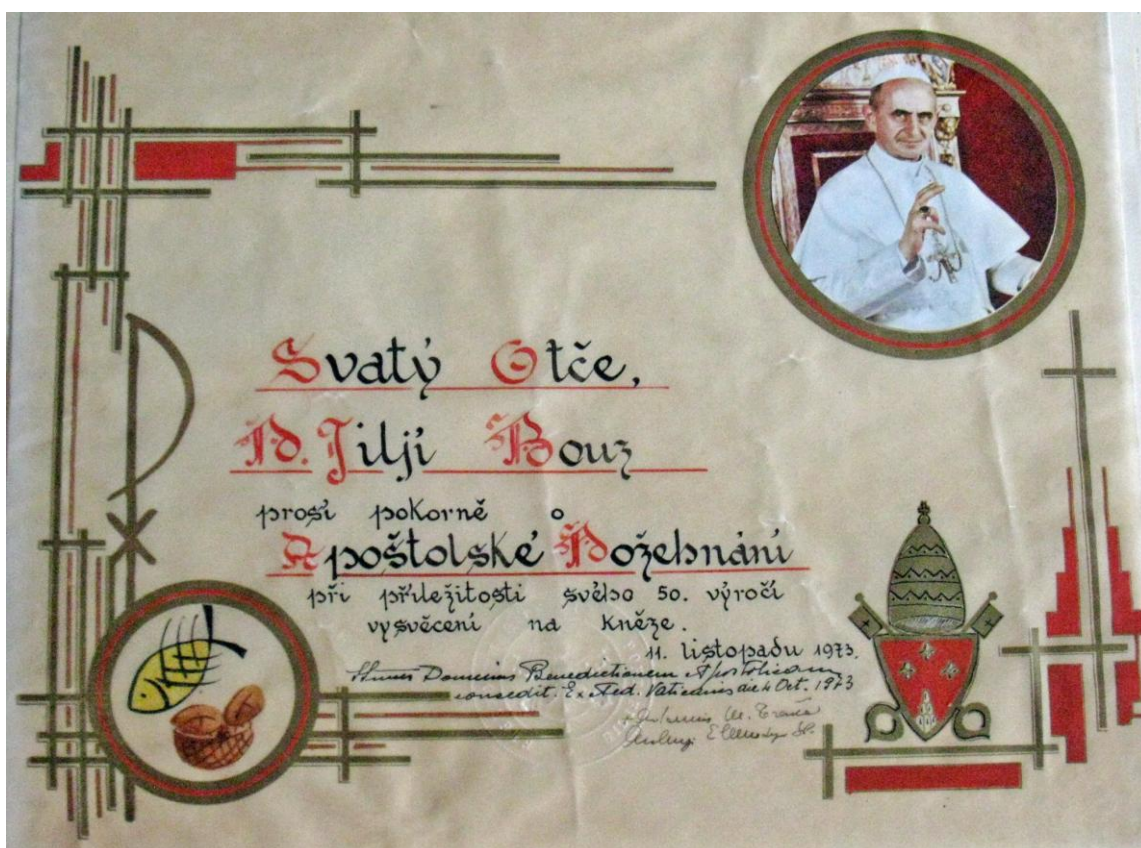 Svatý Otče,
P. Jiljí Bouz
prosí pokorně o
Apoštolské Požehnání
při příležitosti svého 50. výročí
vysvěcení na kněze.
11. listopadu 1973.
Dominus Benedictionem Apostolicam
Ex Aed. Vaticanis die 4 Oct. 1973